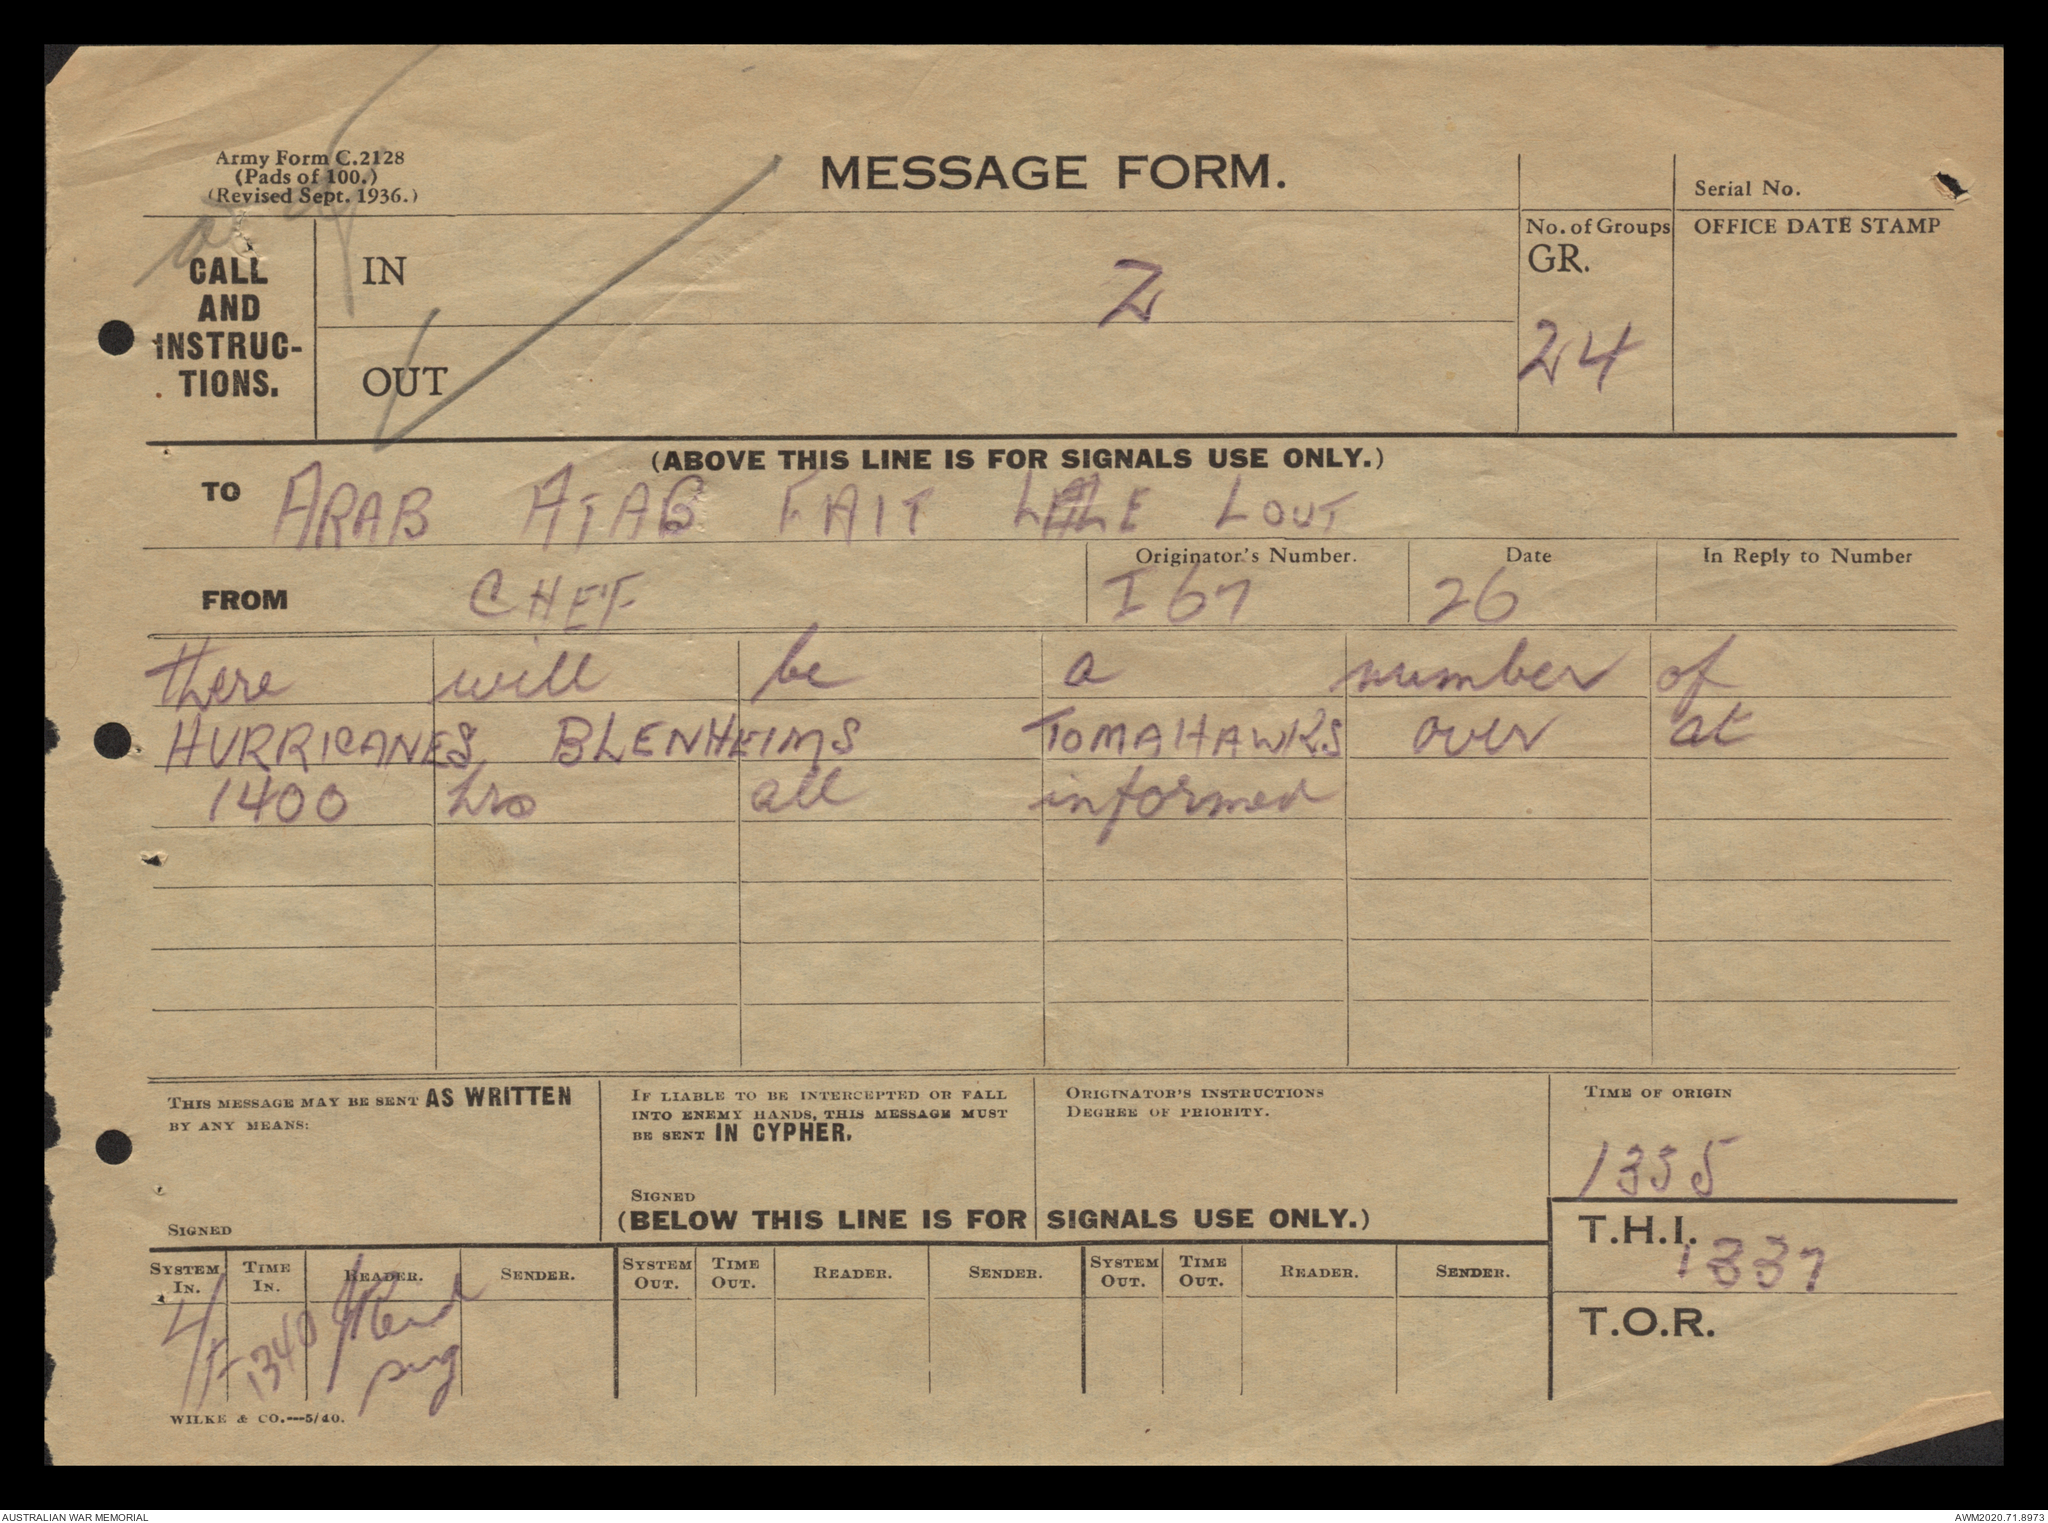 Army Form C.2128
(Pads of 100.)
(Revised Sept. 1936.)
MESSAGE FORM.
Serial No.
CALL
AND
INSTRUC-
TIONS.
IN
OUT
Z
No. of Groups
GR.
24
OFFICE DATE STAMP
(ABOVE THIS LINE IS FOR SIGNALS USE ONLY.)
TO ARAB ATAG FAIT LALE LOUT
FROM CHEF
Originator's Number.
I 67
Date
26
In Reply to Number
there will be a number of
HURRICANES BLENHEIMS TOMAHAWKS over at
1400 hrs all informed
THIS MESSAGE MAY BE SENT AS WRITTEN
BY ANY MEANS:
SIGNED
IF LIABLE TO BE INTERCEPTED OR FALL
INTO ENEMY HANDS, THIS MESSAGE MUST
BE SENT IN CYPHER.
SIGNED
ORIGINATOR'S INSTRUCTIONS
DEGREE OF PRIORITY.
TIME OF ORIGIN
1335
(BELOW THIS LINE IS FOR SIGNALS USE ONLY.)
T.H.I.
1337
T.O.R.
SYSTEM IN. TIME IN. READER. SENDER. SYSTEM OUT. TIME OUT. READER. SENDER. SYSTEM OUT. TIME OUT. READER. SENDER.
1340
WILKE & CO.---5/40.
AUSTRALIAN WAR MEMORIAL
AWM2020.71.8973